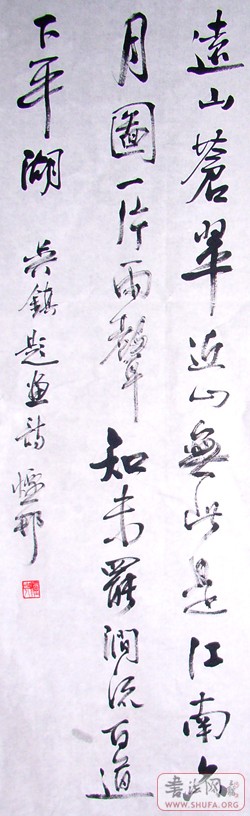 遠山蒼翠近山無此是江南六
月圖一片雨聲知未罷澗流百道
下平湖 吳鎮題畫詩
WWW.SHUFA.ORG